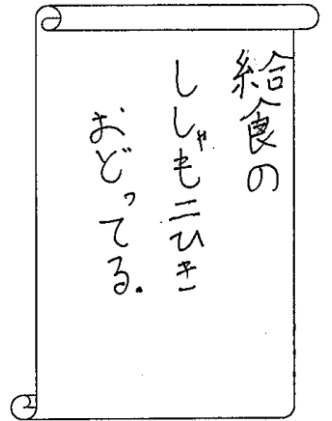 給食の
ししゃも二ひき
おどってる.